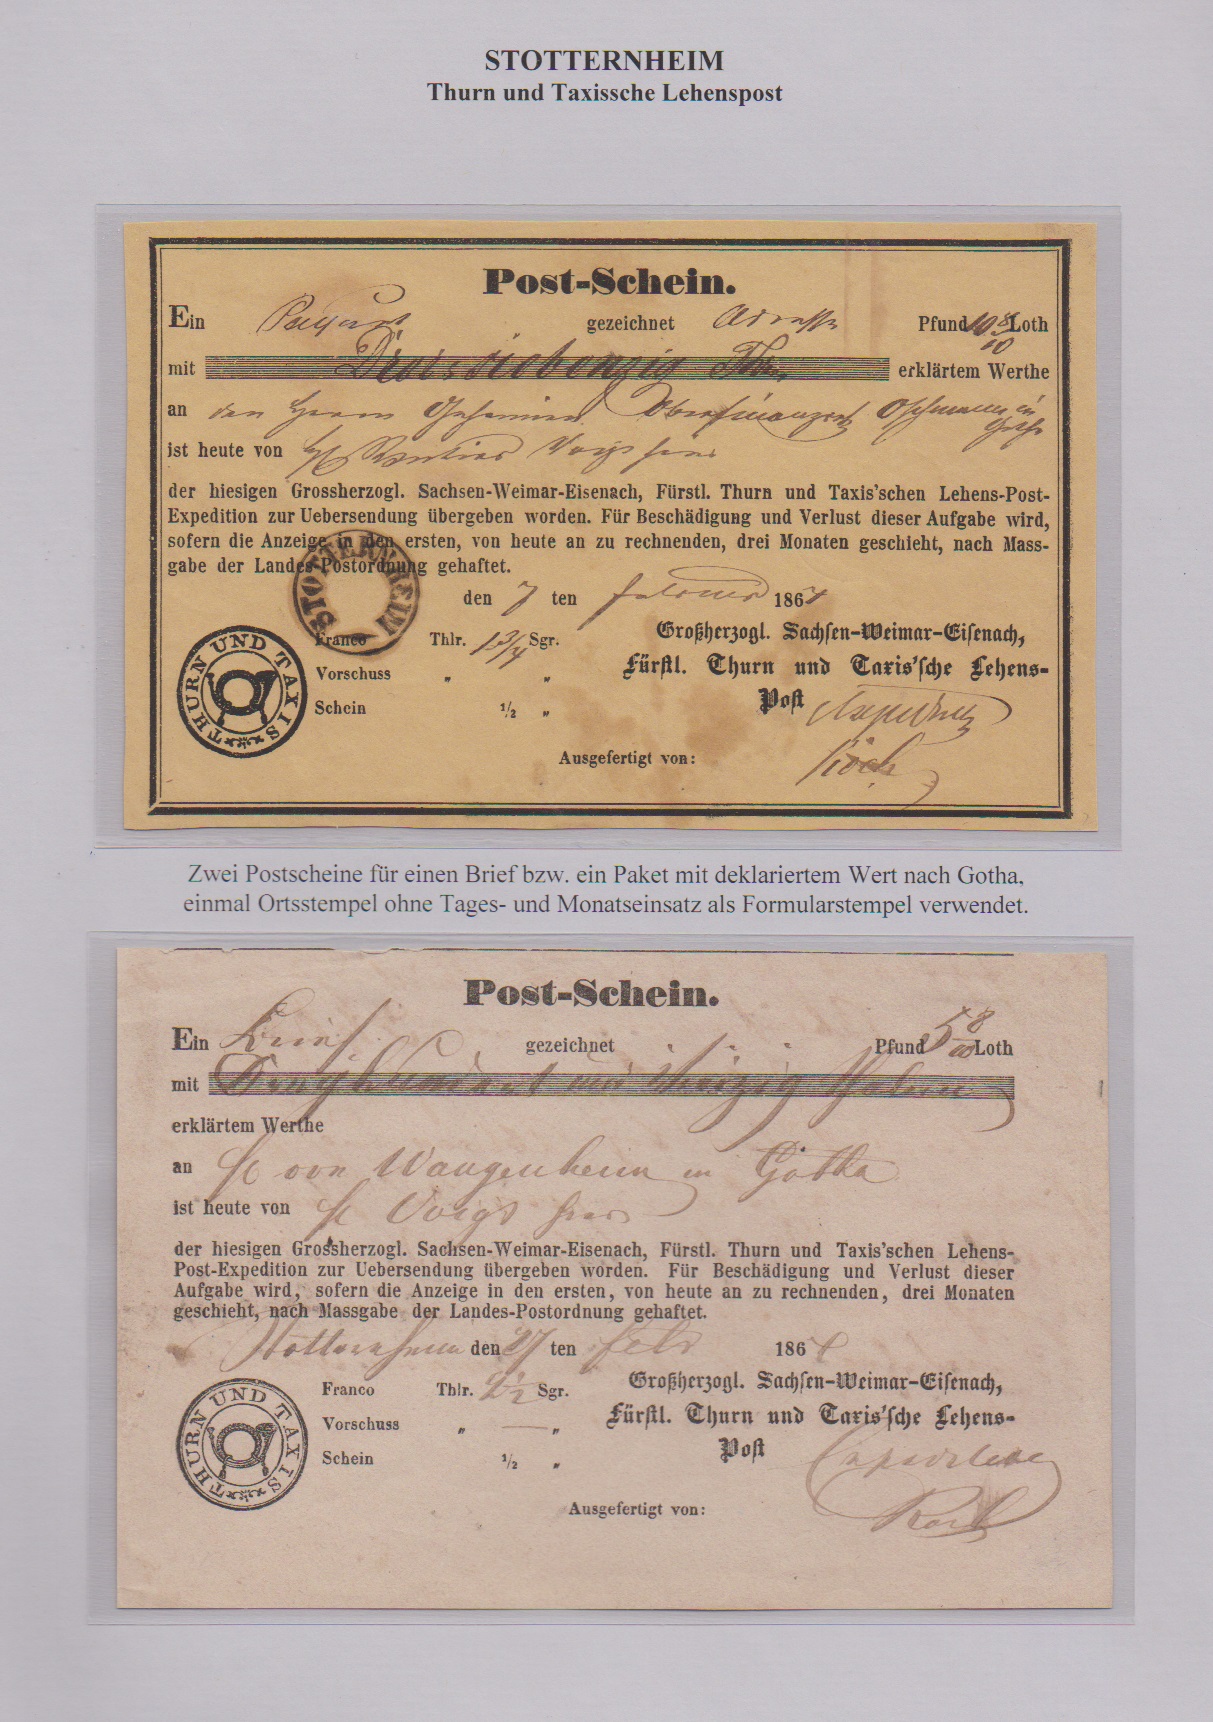 STOTTERNHEIM
Thurn und Taxissche Lehenspost
Post-Schein.
Ein gezeichnet Adresse Pfund 10 8/10 Loth
mit erklärtem Werthe
an den Herrn Geheimen Oberfinanzrath in Gotha
ist heute von Voigt hier
der hiesigen Grossherzogl. Sachsen-Weimar-Eisenach, Fürstl. Thurn und Taxis'schen Lehens-Post-
Expedition zur Uebersendung übergeben worden. Für Beschädigung und Verlust dieser Aufgabe wird,
sofern die Anzeige in den ersten, von heute an zu rechnenden, drei Monaten geschieht, nach Mass-
gabe der Landes-Postordnung gehaftet.
STOTTERNHEIM
den 7 ten Februar 1864
THURN UND TAXIS
Franco Thlr. 1 3/4 Sgr.
Vorschuss " "
Schein 1/2 "
Großherzogl. Sachsen-Weimar-Eisenach,
Fürstl. Thurn und Taxis'sche Lehens-
Post Expedition
Ausgefertigt von: Koch
Zwei Postscheine für einen Brief bzw. ein Paket mit deklariertem Wert nach Gotha,
einmal Ortsstempel ohne Tages- und Monatseinsatz als Formularstempel verwendet.
Post-Schein.
Ein Brief gezeichnet Pfund 5 8/10 Loth
mit
erklärtem Werthe
an H von Wangenheim in Gotha
ist heute von H Voigt hier
der hiesigen Grossherzogl. Sachsen-Weimar-Eisenach, Fürstl. Thurn und Taxis'schen Lehens-
Post-Expedition zur Uebersendung übergeben worden. Für Beschädigung und Verlust dieser
Aufgabe wird, sofern die Anzeige in den ersten, von heute an zu rechnenden, drei Monaten
geschieht, nach Massgabe der Landes-Postordnung gehaftet.
Stotternheim den 27 ten Febr 1864
THURN UND TAXIS
Franco Thlr. 2 1/2 Sgr.
Vorschuss " — "
Schein 1/2 "
Großherzogl. Sachsen-Weimar-Eisenach,
Fürstl. Thurn und Taxis'sche Lehens-
Post Expedition
Ausgefertigt von: Koch